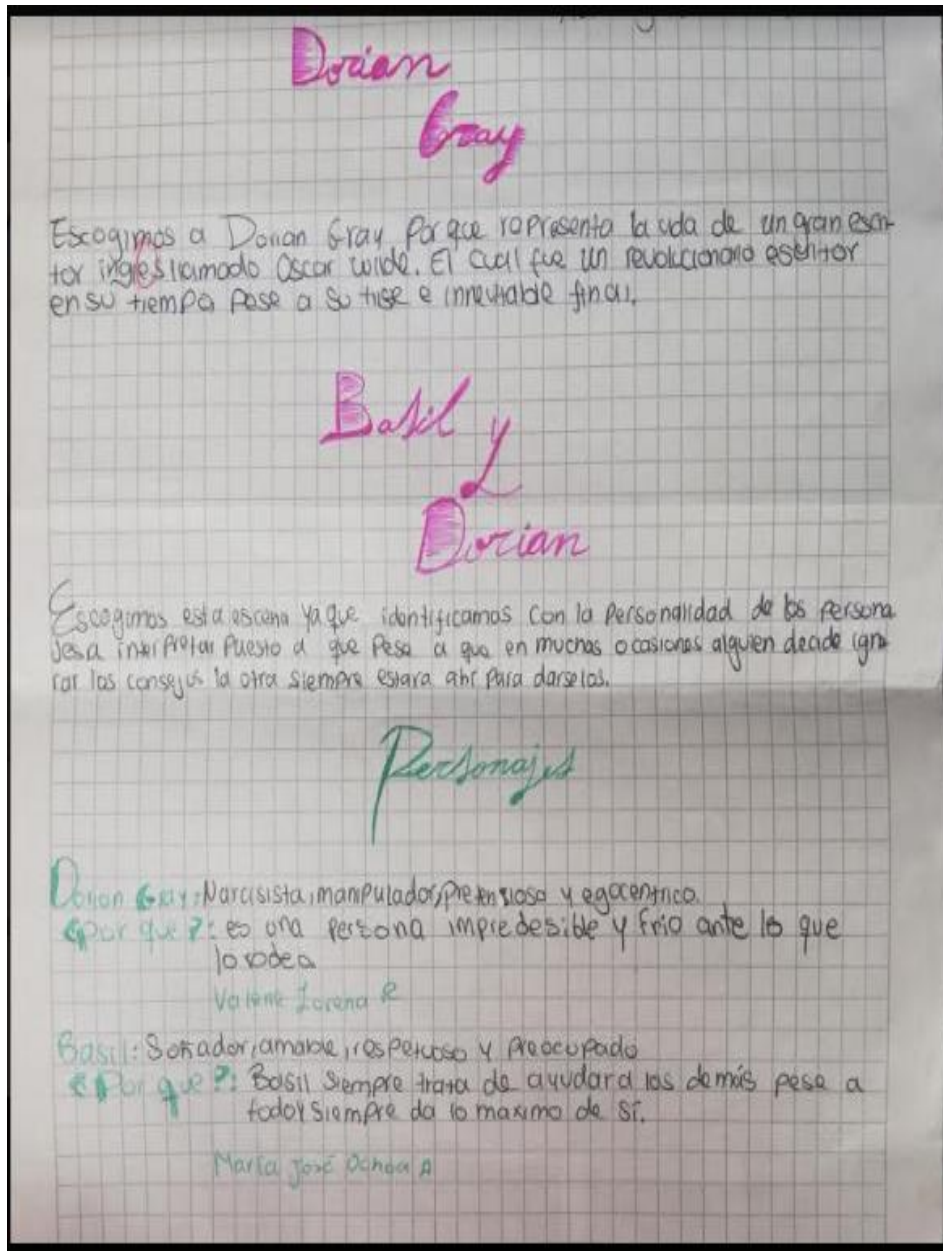 Dorian
Gray
Escogimos a Dorian Gray Porque representa la vida de un gran escri-
tor ingles llamado Oscar wilde. El cual fue un revolucionario escritor
en su tiempo pese a su trise e inneviable final.
Basil y
Dorian
Escogimos esta escena ya que identificamos con la Personalidad de los persona
Jes a interpretar Puesto a que Pese a que en muchas ocasiones alguien decide igno
rar los consejos la otra siempre estara ahi para darselos.
Personajes
Dorian Gray: Narcisista, manipulador, pretensioso y egocentrico.
¿Por que?: es una persona impredesible y frio ante lo que
lo rodea
Valerie Lorena R
Basil: Soñador, amable, respetuoso y preocupado
¿Por que?: Basil siempre trata de ayudar a los demás pese a
todo y siempre da lo maximo de sí.
María José Ochoa A